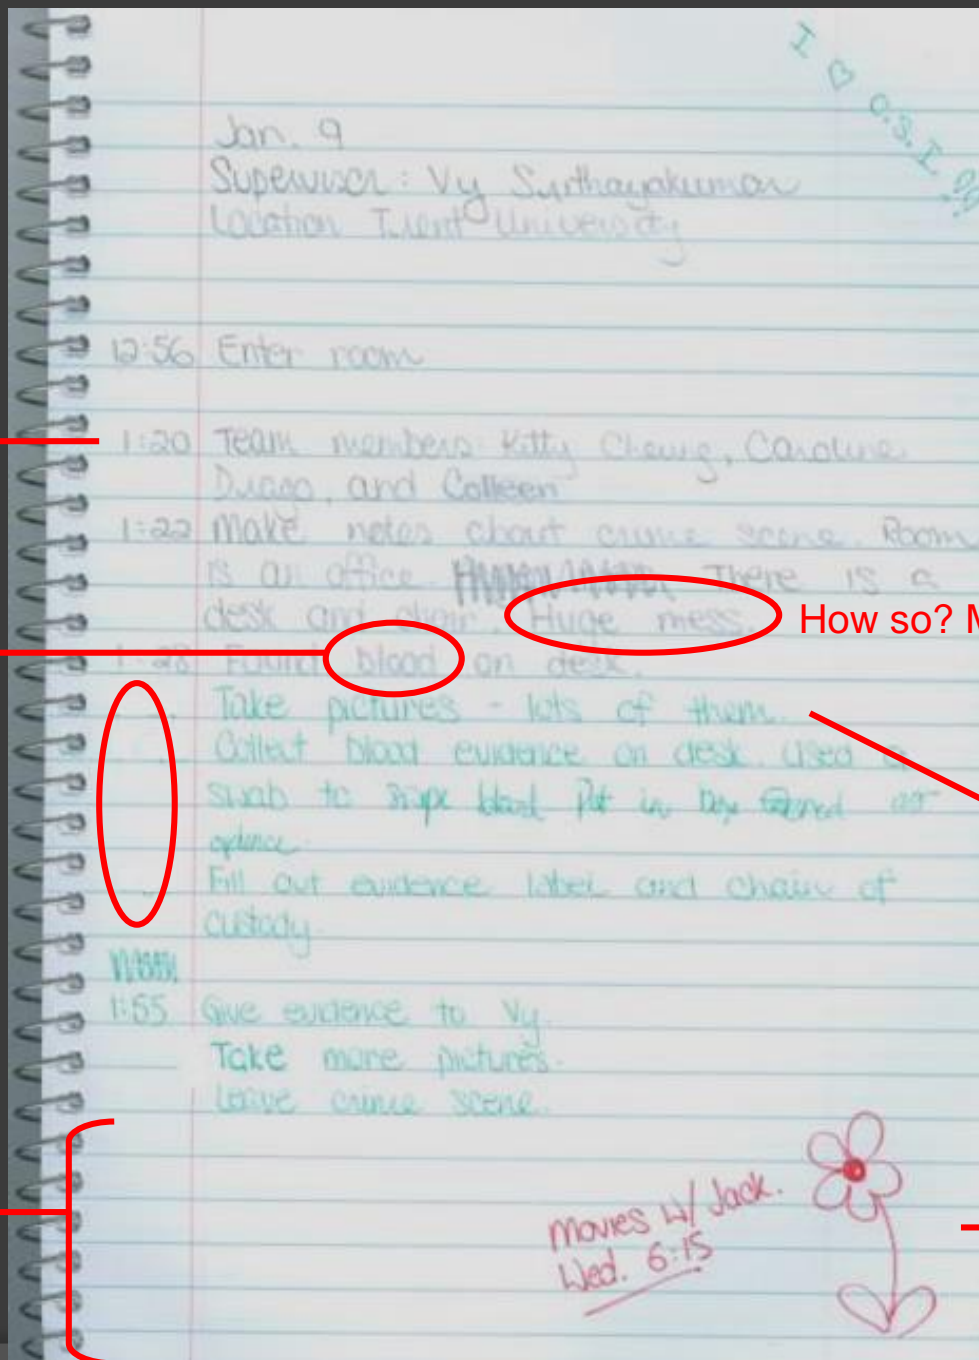 I ♡ C.S.I !!
Jan. 9
Supervisor: Vy Surthayakumar
Location Trent University
12:56 Enter room
1:20 Team members: Kitty Cheung, Caroline
Drago, and Colleen
1:22 Make notes about crime scene. Room
is an office. There is a
desk and chair. Huge mess.
How so? M
1:28 Found blood on desk.
Take pictures - lots of them.
Collect blood evidence on desk. Used a
swab to blood. Put in
Fill out evidence label and chain of
custody.
1:55 Give evidence to Vy.
Take more pictures.
Leave crime scene.
movies w/ Jack.
Wed. 6:15